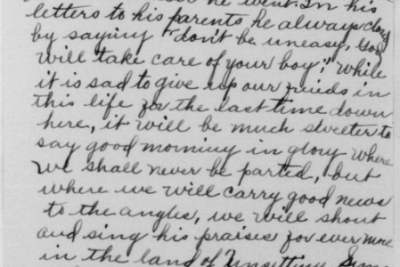 he went In his
letters to his parents he always close
by saying "don't be uneasy, God
will take care of your boy." While
it is sad to give up our frieds in
this life for the last time down
here, it will be much sweeter to
say good morning in glory where
we shall never be parted, but
where we will carry good news
to the angles, we will shout
and sing his praises for ever more
in the land of Unsetting Suns